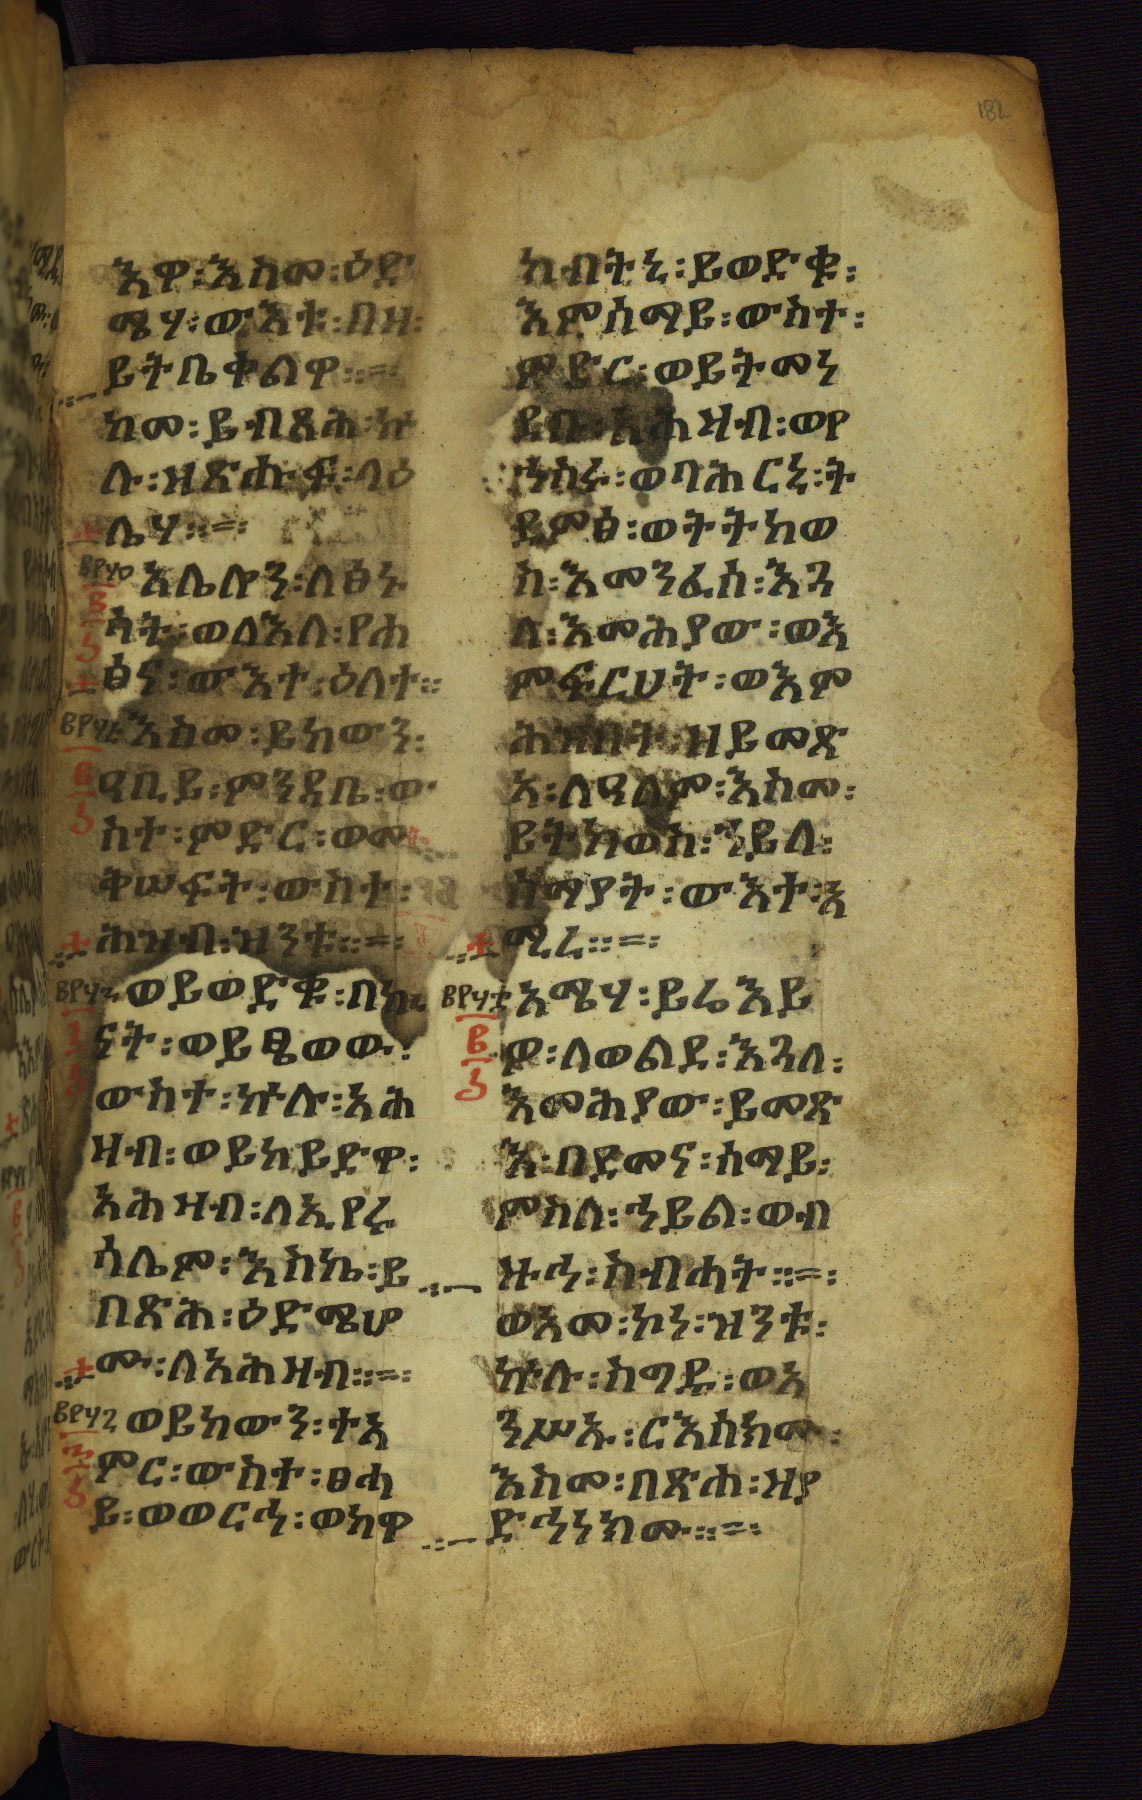 182
እዋ፡እስመ፡ዕድ
ሜሃ፡ውእቱ፡በዘ፡
ይትቤቀልዋ።=
ከመ፡ይብጻሕ፡ኵ
ሉ፡ዘጽሑፍ፡ላዕ
ሌሃ።=
እሌሎን፡ለፅኑ
ሳት፡ወለእለ፡የሐ
ፅና፡ውእተ፡ዕለተ።
እስመ፡ይከውን፡
ዓቢይ፡ምንዳቤ፡ው
ስተ፡ምድር፡ወመ
ቅሠፍት፡ውስተ፡
ሕዝብ፡ዝንቱ።=
ወይወድቁ፡በኲ
ናት፡ወይፄወው፡
ውስተ፡ኵሉ፡አሕ
ዛብ፡ወይከይድዋ፡
አሕዛብ፡ለኢየሩ
ሳሌም፡እስከ፡ይ
በጽሕ፡ዕድሜሆ
ሙ፡ለአሕዛብ።=
ወይከውን፡ተአ
ምር፡ውስተ፡ፀሓ
ይ፡ወወርኅ፡ወከዋ
ክብትኒ፡ይወድቁ፡
እምሰማይ፡ውስተ፡
ምድር፡ወይትመነ
ደቡ፡አሕዛብ፡ወየ
ኀስሩ፡ወባሕርኒ፡ት
ደምፅ፡ወትትከወ
ስ፡እመንፈሰ፡እጓ
ለ፡እመሕያው፡ወእ
ምፍርሀት፡ወእም
ሕዝበት፡ዘይመጽ
እ፡ለዓለም፡እስመ፡
ይትከወስ፡ኀይለ፡
ሰማያት፡ውእተ፡አ
ሚረ።=
አሜሃ፡ይሬእይ
ዎ፡ለወልደ፡እጓለ፡
እመሕያው፡ይመጽ
እ፡በደመና፡ሰማይ፡
ምስለ፡ኀይል፡ወብ
ዙኅ፡ስብሐት።=
ወአመ፡ኮነ፡ዝንቱ፡
ኵሉ፡ስግዱ፡ወአ
ንሥኡ፡ርእሰክሙ፡
እስመ፡በጽሐ፡ዘያ
ድኅነክሙ።=